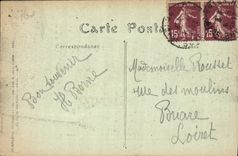 Carte Postale
Correspondance
15
15
Bon Souvenir
H. Reine
Mademoiselle Rousset
rue des moulins
Briare
Loiret